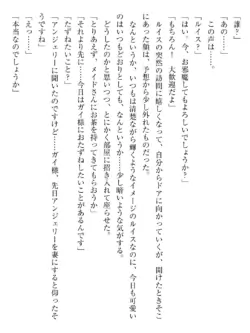 「誰?」
「あの……」
この声は……。
「ルイス?」
「はい、今、お邪魔してもよろしいでしょうか?」
「もちろん! 大歓迎だよ」
ルイスの突然の訪問に嬉しくなって、自分からドアに向かっていくが、開けたときそこに
あった顔は、予想から少し外れたものだった。
なんというか、いつもは清楚ながら輝くようなイメージのルイスなのに、今日も可愛い
のはいつもどおりとしても、なんというか……少し暗いような気がする。
どうしたのかと思いつつも、とにかく部屋に招き入れて座らせた。
「とりあえず、メイドさんにお茶を持ってきてもらおうか」
「それより先に……今日はガイ様におたずねしたいことがあるのです」
「たずねたいこと?」
「アンジェリーに聞いたのですけど……ガイ様、先日アンジェリーを妻にすると仰ったそ
うですね」
「えっ……」
「本当なのでしょうか」